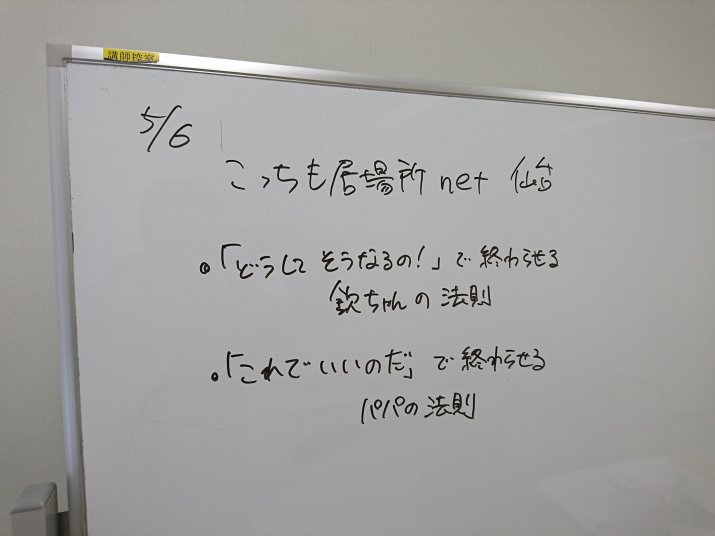 講師控室
5/6
こっちも居場所net 仙台
・「どうして そうなるの！」で 終わらせる
欽ちゃんの 法則
・「これでいいのだ」で 終わらせる
パパの 法則